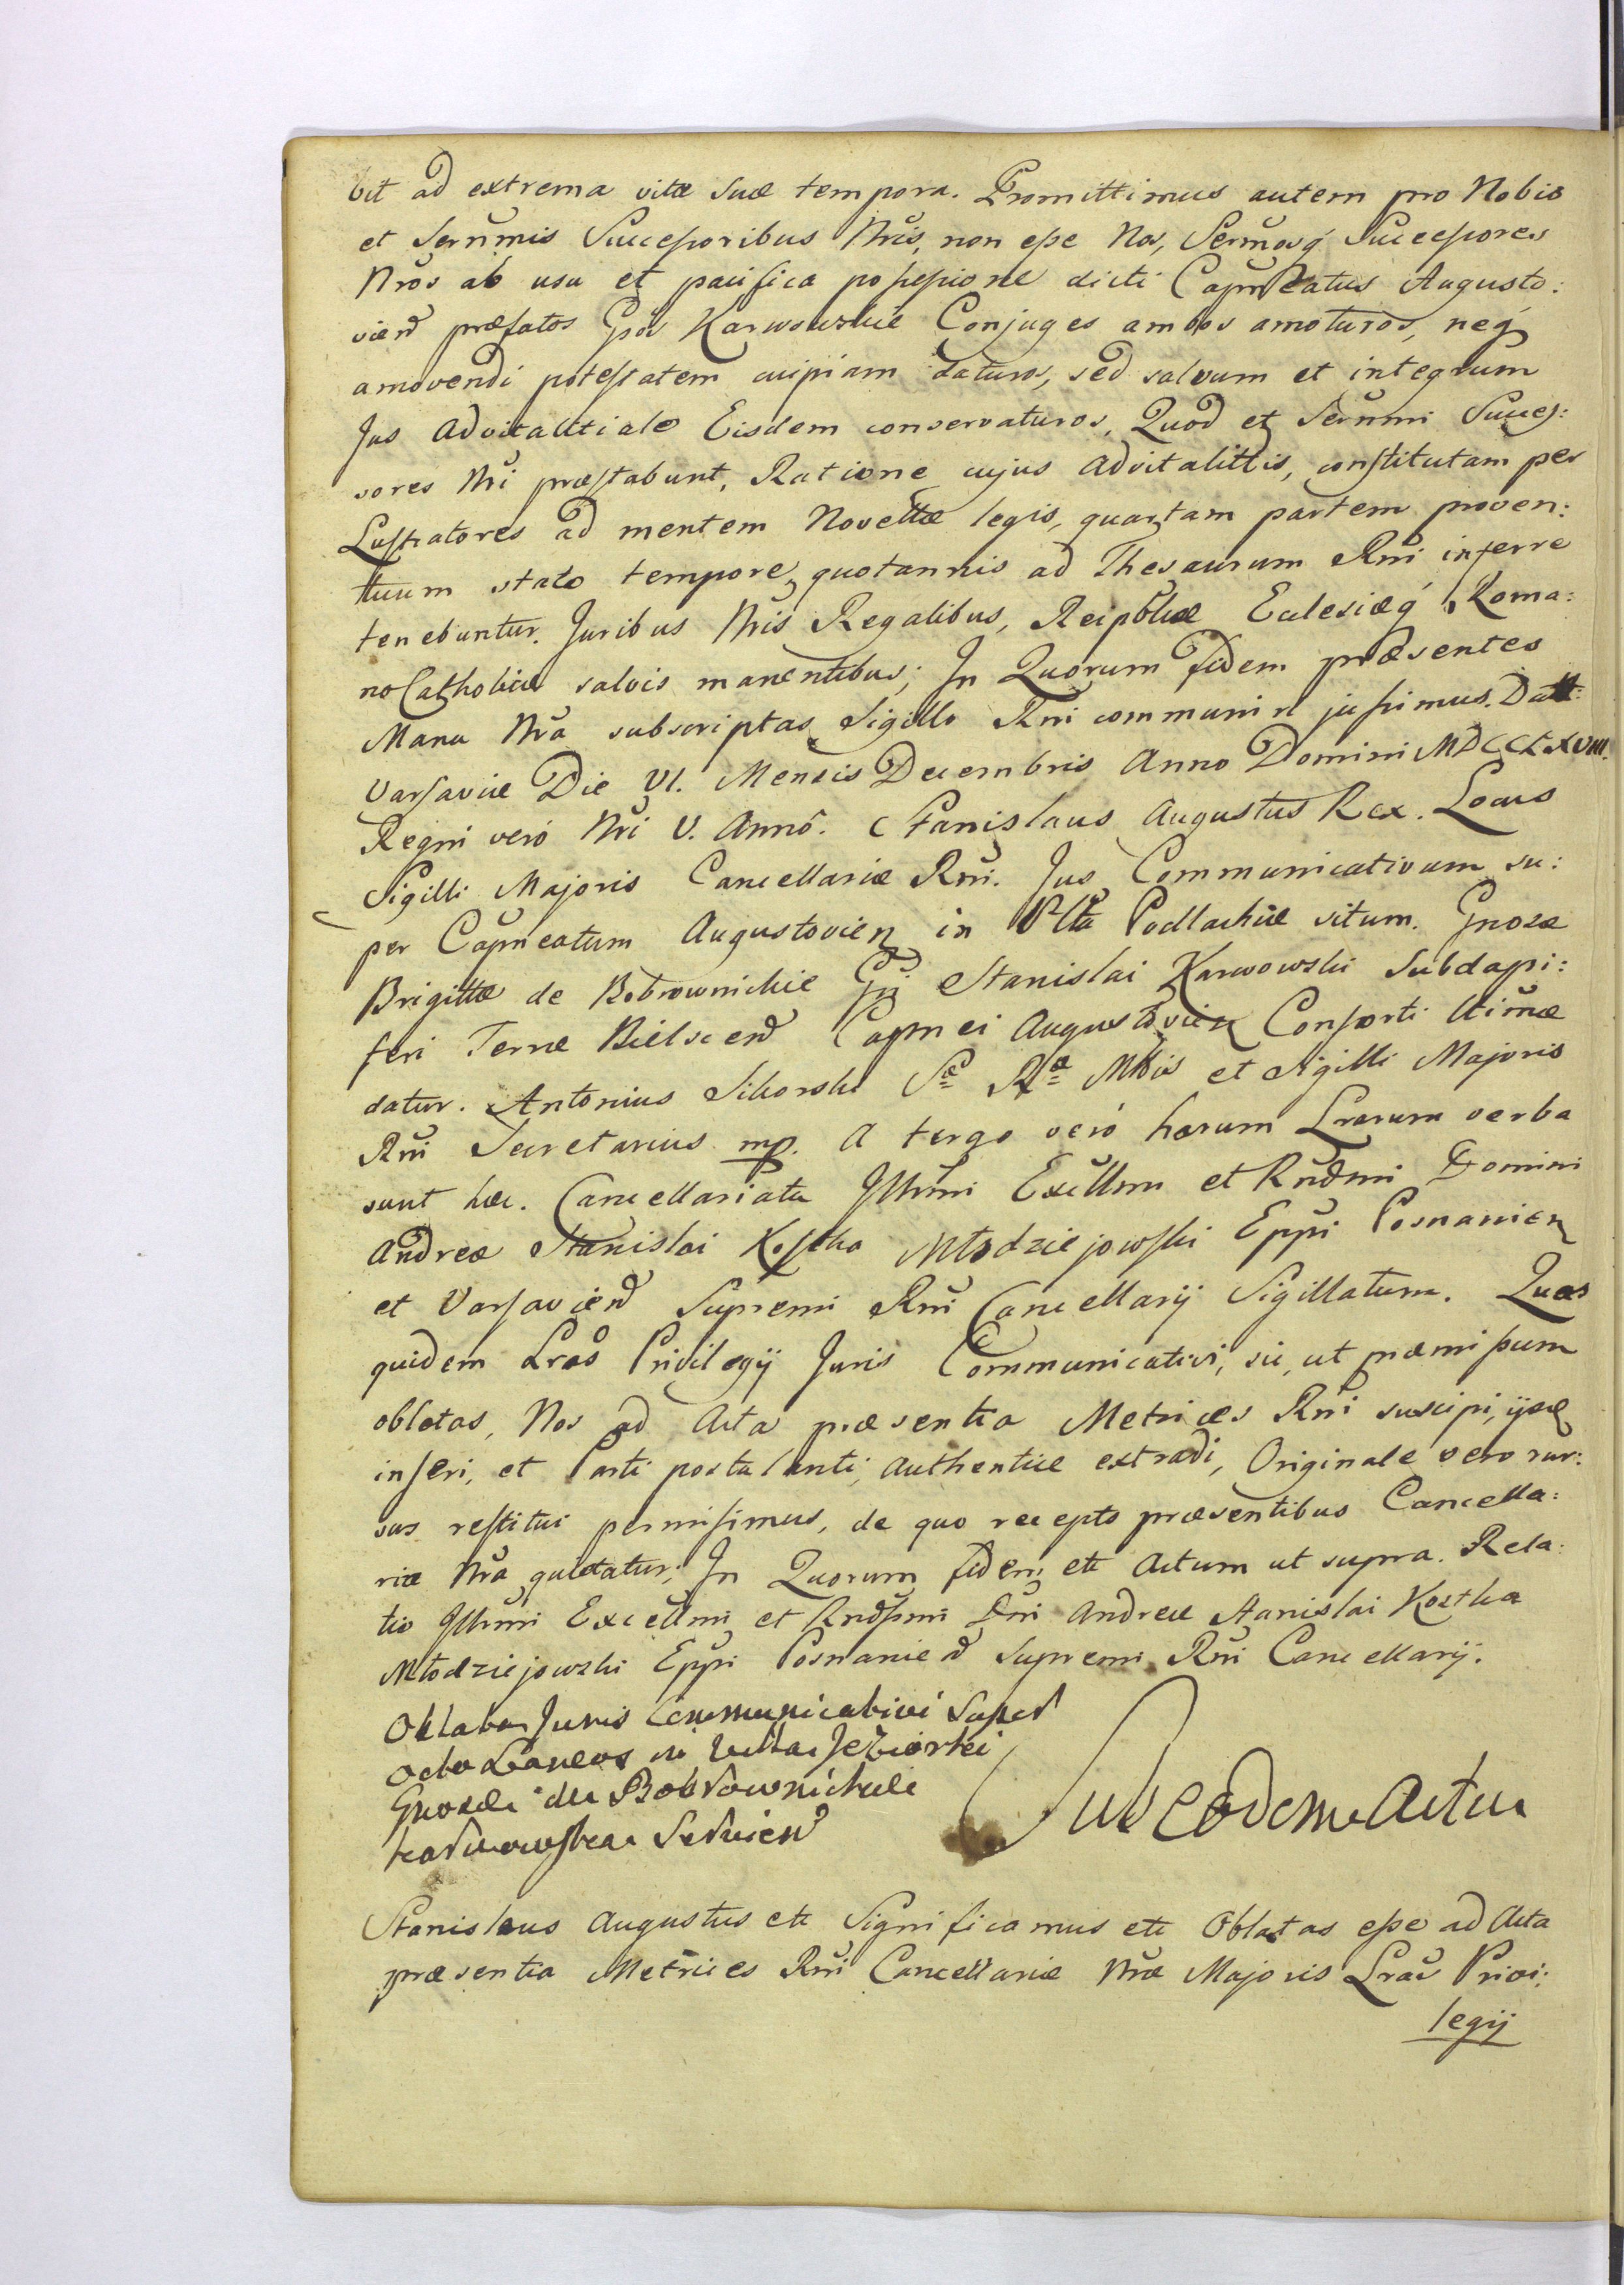 bit ad extrema vitæ suæ tempora. Promittimus autem pro Nobis
et Serñmis Successoribus Nris, non esse Nos, Sermosq́ Successores
Nros ab usu et pacifica possessione dicti Capneatus Augusto:
vien præfatos Gsos Karwowskie Conjuges ambos amoturos, neq́
amovendi potestatem cuipiam daturos, sed salvum et integrum
Jus Advitalitiale Eisdem conservaturos, Quod et Serñmi Succes:
sores Nri præstabunt, Ratione cujus advitalittis, constitutam per
Lustratores ad mentem Novellæ legis, quartam partem proven:
tuum stato tempore quotannis ad Thesaurum Rni inferre
tenebuntur. Juribus Nris Regalibus, Reipblicæ Eclesiæq́ Roma:
no Catholicæ salvis manentibus; In Quorum fidem præsentes
Manu Nra subscriptas Sigillo Rni communiri jussimus. Datt:
Varsaviæ Die VI. Mensis Decembris Anno Domini MDCCLXVIII.
Regni veró Nri V. Anno. Stanislaus Augustus Rex. Locus
Sigilli Majoris Cancellariæ Rni. Jus Communicativum su:
per Capneatum Augustovien in Pltu Podlachiæ situm. Gnosæ
Brigittæ de Bobrownickie Gsi Stanislai Karwowski Subdapi:
feri Terræ Bielscen Capnei Augustovien Consorti ltimæ
datur. Antonius Sikorski Sæ Ræ Mttis et Sigilli Majoris
Rni Secretarius mp. A tergo veró harum Lrarum verba
sunt hæc. Cancellariatu Illrmi Excllmi et Rndmi Domini
Andreæ Stanislai Kostka Młodziejowski Eppi Posnanien
et Varsavien Supremi Rni Cancellarij Sigillatum. Quas
quidem Lras Privilegij Juris Communicativi, sic, ut præmissum
oblatas, Nos ad Acta præsentia Metrices Rni suscipi, ijsq
inseri, et Parti postulanti, authentice extradi, Originale vero rur:
sus restitui permisimus, de quo recepto præsentibus Cancella:
ria Nra quietatur; In Quorum fidem etc Actum ut supra. Rela:
tio Illrmi Excellmi et Rndssmi Dni Andreæ Stanislai Kostka
Młodziejowski Eppi Posnanien Supremi Rni Cancellarij.
Oblata Juris Communicativi Super
octo Laneos in Villa Jeziorki
Gnosæ de Bobrownickie
Karwowska Servien
Sub eodem Actu
Stanislaus Augustus etc Significamus etc Oblatas esse ad Acta
præsentia Metrices Rni Cancellariæ Nræ Majoris Lras Privi:
legij